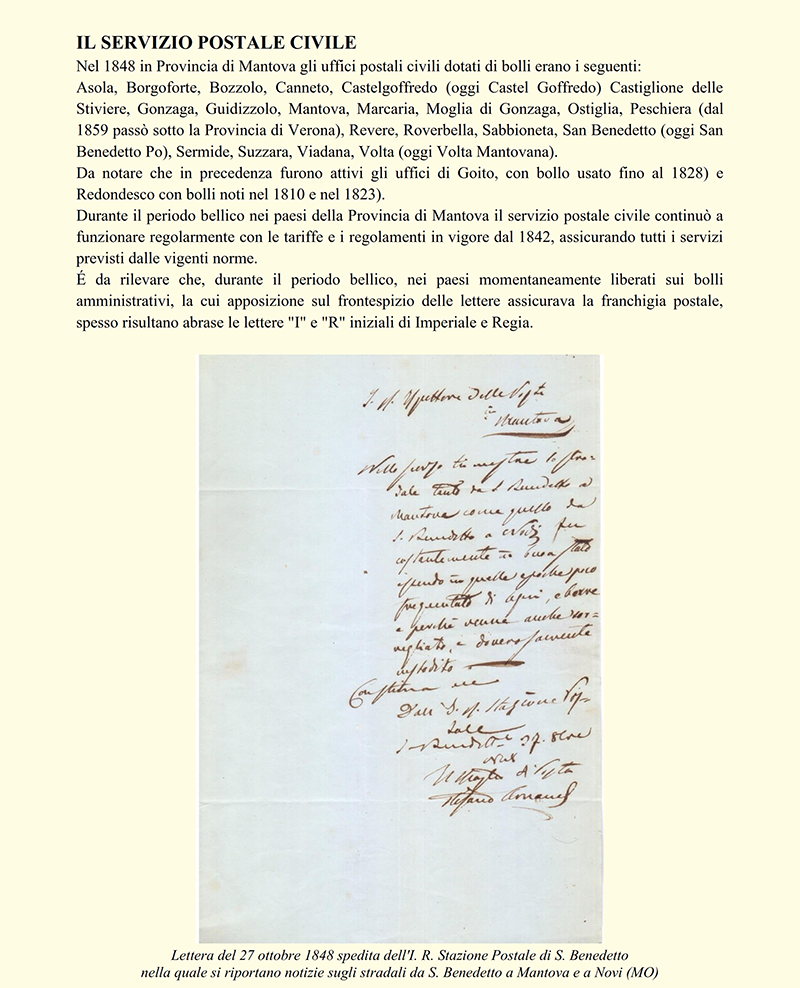 IL SERVIZIO POSTALE CIVILE
Nel 1848 in Provincia di Mantova gli uffici postali civili dotati di bolli erano i seguenti:
Asola, Borgoforte, Bozzolo, Canneto, Castelgoffredo (oggi Castel Goffredo) Castiglione delle
Stiviere, Gonzaga, Guidizzolo, Mantova, Marcaria, Moglia di Gonzaga, Ostiglia, Peschiera (dal
1859 passò sotto la Provincia di Verona), Revere, Roverbella, Sabbioneta, San Benedetto (oggi San
Benedetto Po), Sermide, Suzzara, Viadana, Volta (oggi Volta Mantovana).
Da notare che in precedenza furono attivi gli uffici di Goito, con bollo usato fino al 1828) e
Redondesco con bolli noti nel 1810 e nel 1823).
Durante il periodo bellico nei paesi della Provincia di Mantova il servizio postale civile continuò a
funzionare regolarmente con le tariffe e i regolamenti in vigore dal 1842, assicurando tutti i servizi
previsti dalle vigenti norme.
É da rilevare che, durante il periodo bellico, nei paesi momentaneamente liberati sui bolli
amministrativi, la cui apposizione sul frontespizio delle lettere assicurava la franchigia postale,
spesso risultano abrase le lettere "I" e "R" iniziali di Imperiale e Regia.
Ispettore delle Poste
in Mantova
Nello scorso trimestre lo stra-
dale tanto da S. Benedetto a
Mantova come quello da
S. Benedetto a Novi fu
costantemente in buon stato
essendo in quelle epoche poco
frequentato di
e perché venne anche sor-
vegliato, e doverosamente
custodito
Dall' Stazione Pos-
tale
S. Benedetto 27. 8bre
Il di Posta
Stefano
Lettera del 27 ottobre 1848 spedita dell'I. R. Stazione Postale di S. Benedetto
nella quale si riportano notizie sugli stradali da S. Benedetto a Mantova e a Novi (MO)